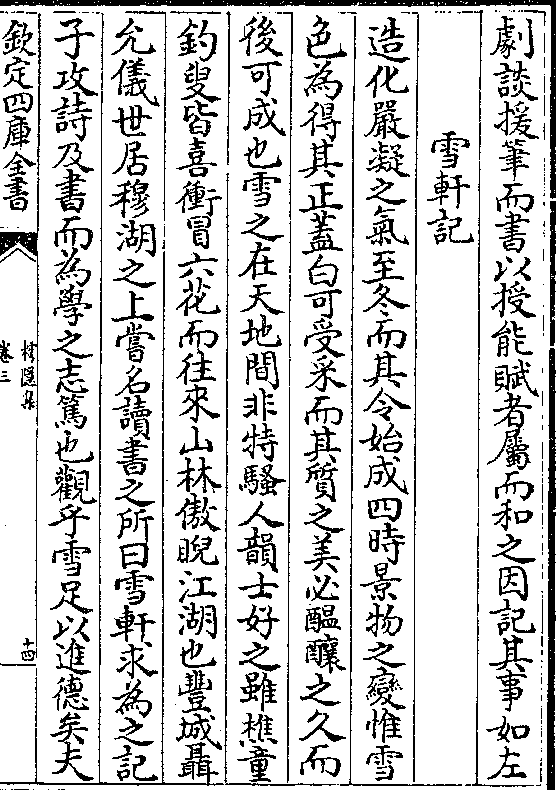 劇談援筆而書以授能賦者屬而和之因記其事如左
雪軒記
造化嚴凝之氣至冬而其令始成四時景物之變惟雪
色為得其正蓋白可受采而其質之美必醞釀之久而
後可成也雪之在天地間非特騷人韻士好之雖樵童
釣叟皆喜衝冒六花而往來山林傲睨江湖也豐城聶
允儀世居穆湖之上嘗名讀書之所曰雪軒求為之記
子攻詩及書而為學之志篤也觀乎雪足以進德矣夫
欽定四庫全書
樗隱集
卷三
十四